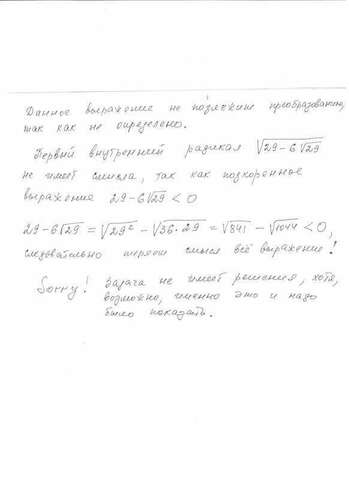 Данное выражение не подлежит преобразованию,
так как не определено.
Первый внутренний радикал √29-6√29
не имеет смысла, так как подкоренное
выражение 29-6√29 < 0
29-6√29 = √29² - √36·29 = √841 - √1044 < 0,
следовательно теряет смысл всё выражение!
Sorry! Задача не имеет решения, хотя,
возможно, именно это и надо
было показать.